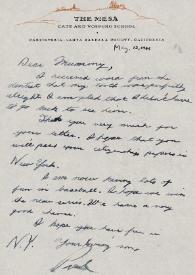 THE MESA
CATE AND VOSBURG SCHOOL
CARPINTERIA, SANTA BARBARA COUNTY, CALIFORNIA
May, 12,
Dear Mummy,
I received word from the
dentist that my tooth was perfectly
alright &
go back to see him.
Thank you very much for
your letter. I hope that you
will pass your citizenship papers in
New York.
I am now having lots of
fun in baseball. I hope we win
the new series. We have a very
good chance.
I hope you have fun in
N.Y. Your loving son,